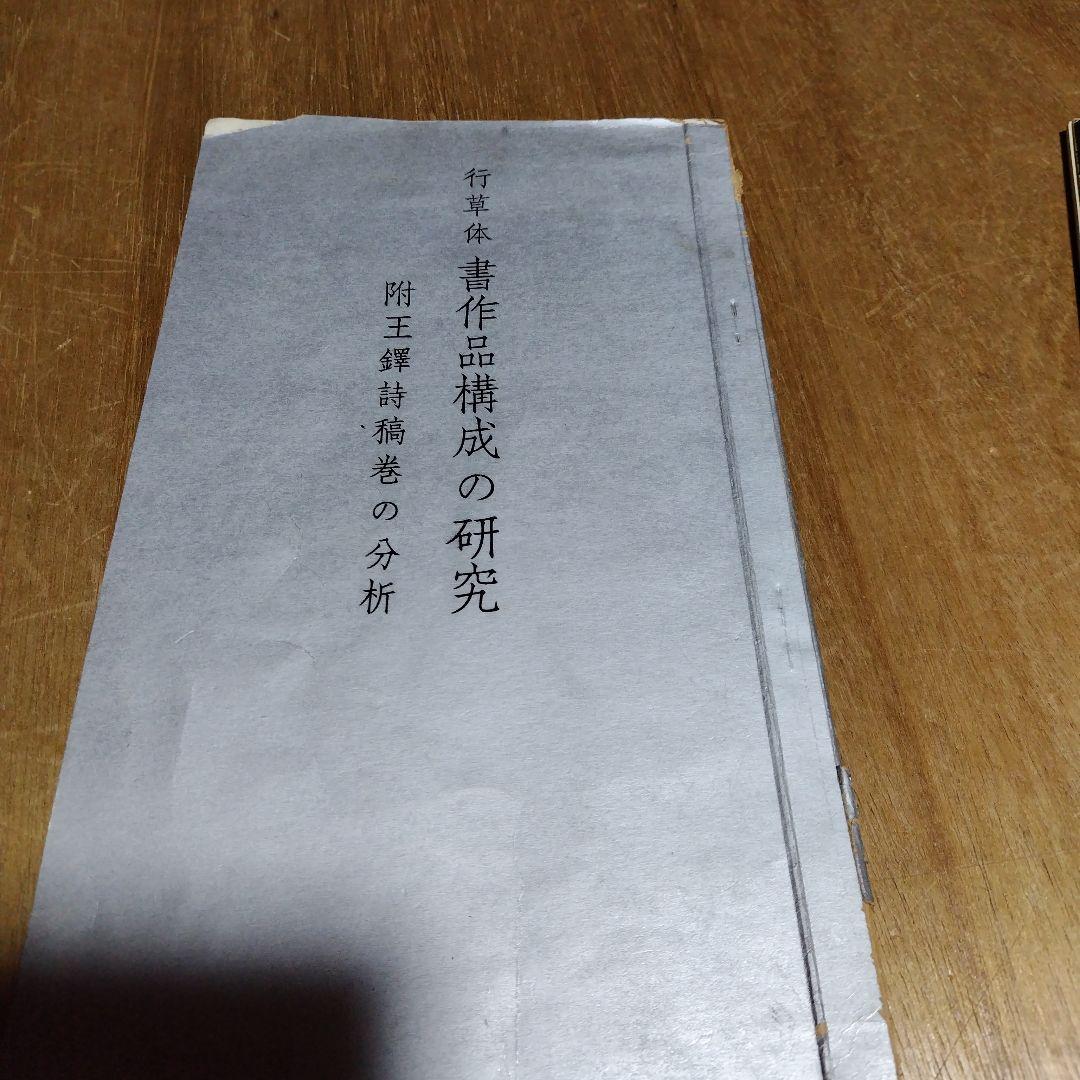 行草体 書作品構成の研究
附王鐸詩稿巻の分析